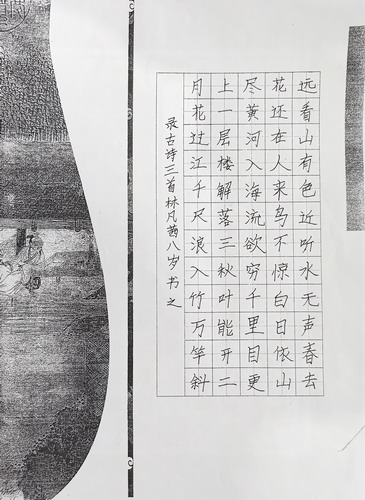 远看山有色近听水无声春去
花还在人来鸟不惊白日依山
尽黄河入海流欲穷千里目更
上一层楼解落三秋叶能开二
月花过江千尺浪入竹万竿斜
录古诗三首林凡茜八岁书之